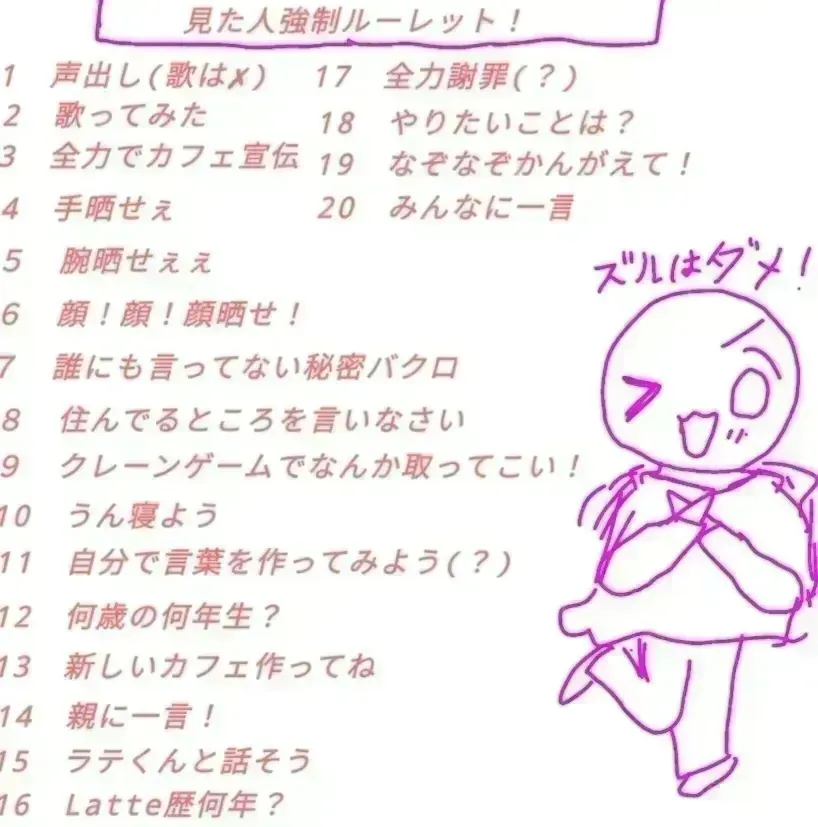 見た人強制ルーレット！
1 声出し(歌は✗)
2 歌ってみた
3 全力でカフェ宣伝
4 手晒せぇ
5 腕晒せぇぇ
6 顔！顔！顔晒せ！
7 誰にも言ってない秘密バクロ
8 住んでるところを言いなさい
9 クレーンゲームでなんか取ってこい！
10 うん寝よう
11 自分で言葉を作ってみよう(？)
12 何歳の何年生？
13 新しいカフェ作ってね
14 親に一言！
15 ラテくんと話そう
16 Latte歴何年？
17 全力謝罪(？)
18 やりたいことは？
19 なぞなぞかんがえて！
20 みんなに一言
ズルはダメ！